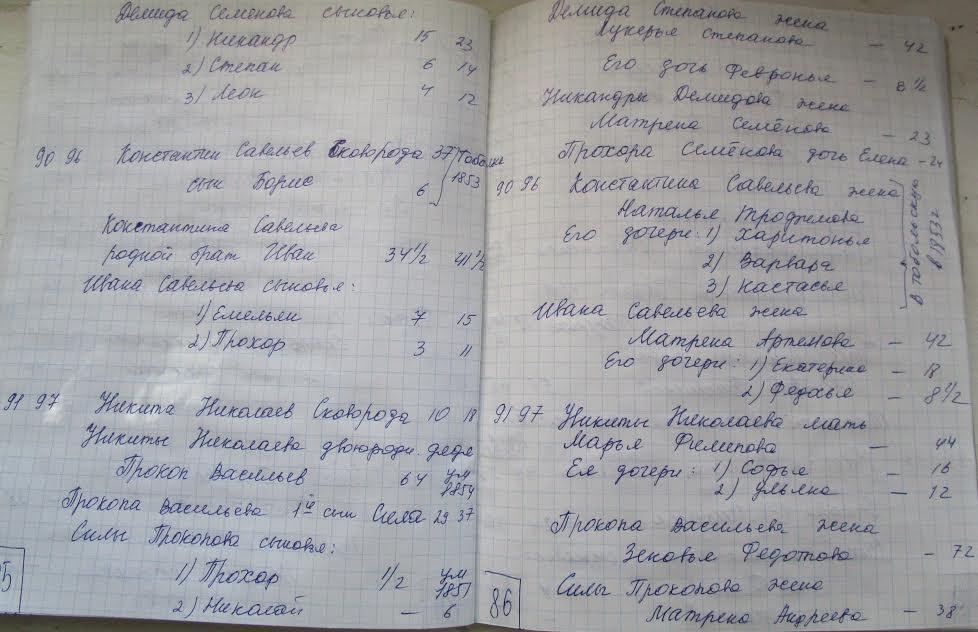 Демида Семёнова сыновья:
1) Никандр 15 23
2) Степан 6 14
3) Леон 4 12
90 96 Константин Савельев Сковорода 37
сын Борис 6 1853
Константина Савельева
родной брат Иван 34 1/2 41 1/2
Ивана Савельева сыновья:
1) Емельян 7 15
2) Прохор 3 11
91 97 Никита Николаев Сковорода 10 18
Никиты Николаева двоюродн. дядя
Прокоп Васильев 64 ум 1854
Прокопа Васильева 1й сын Сила 29 37
Силы Прокопова сыновья:
1) Прохор 1/2 ум 1851
2) Николай — 6
Демида Степанова жена
Лукерья Степанова — 42
Его дочь Февронья — 8 1/2
Никандры Демидова жена
Матрена Семёнова — 23
Прохора Семёнова дочь Елена – 24
90 96 Константина Савельева жена
Наталья Трофимова
Его дочери: 1) Харитонья
2) Варвара
3) Настасья
в тобольскую
в 1853г
Ивана Савельева жена
Матрена Артемова — 42
Его дочери: 1) Екатерина — 18
2) Федосья — 8 1/2
91 97 Никиты Николаева мать
Марья Филипова — 44
Ея дочери: 1) Софья — 16
2) Ульяна — 12
Прокопа Васильева жена
Зеновья Федотова — 72
Силы Прокопова жена
86 Матрена Андреева — 38